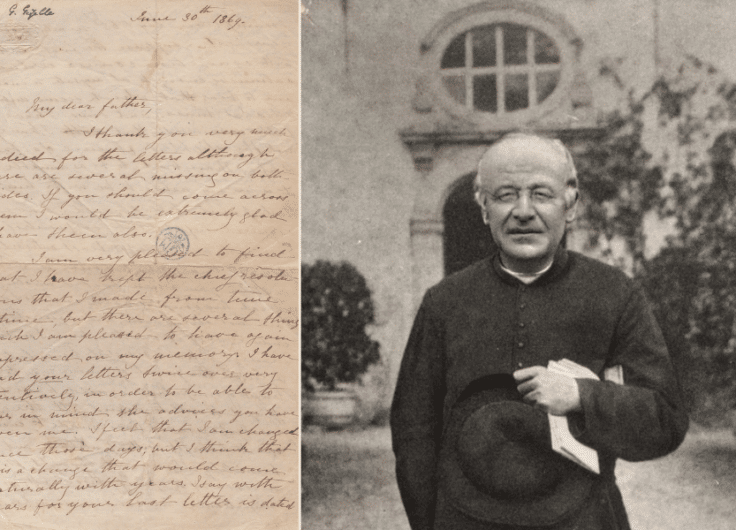 June 30th 1869.
My dear father,
I thank you very much
for the letters although
are are several missing on both
des. If you should come across
em I would be extremely glad
have them also.
I am very pleased to find
at I have kept the chief resolu
ns that I made from time
time, but there are several thing
ch I am pleased to have again
pressed on my memory. I have
d your letters twice over very
tentively, in order to be able to
ar in mind the advices you have
ven me. I feel that I am changed
ce those days, but I think that
is a change that would come
aturally with years. I say with
ars for your last letter is dated